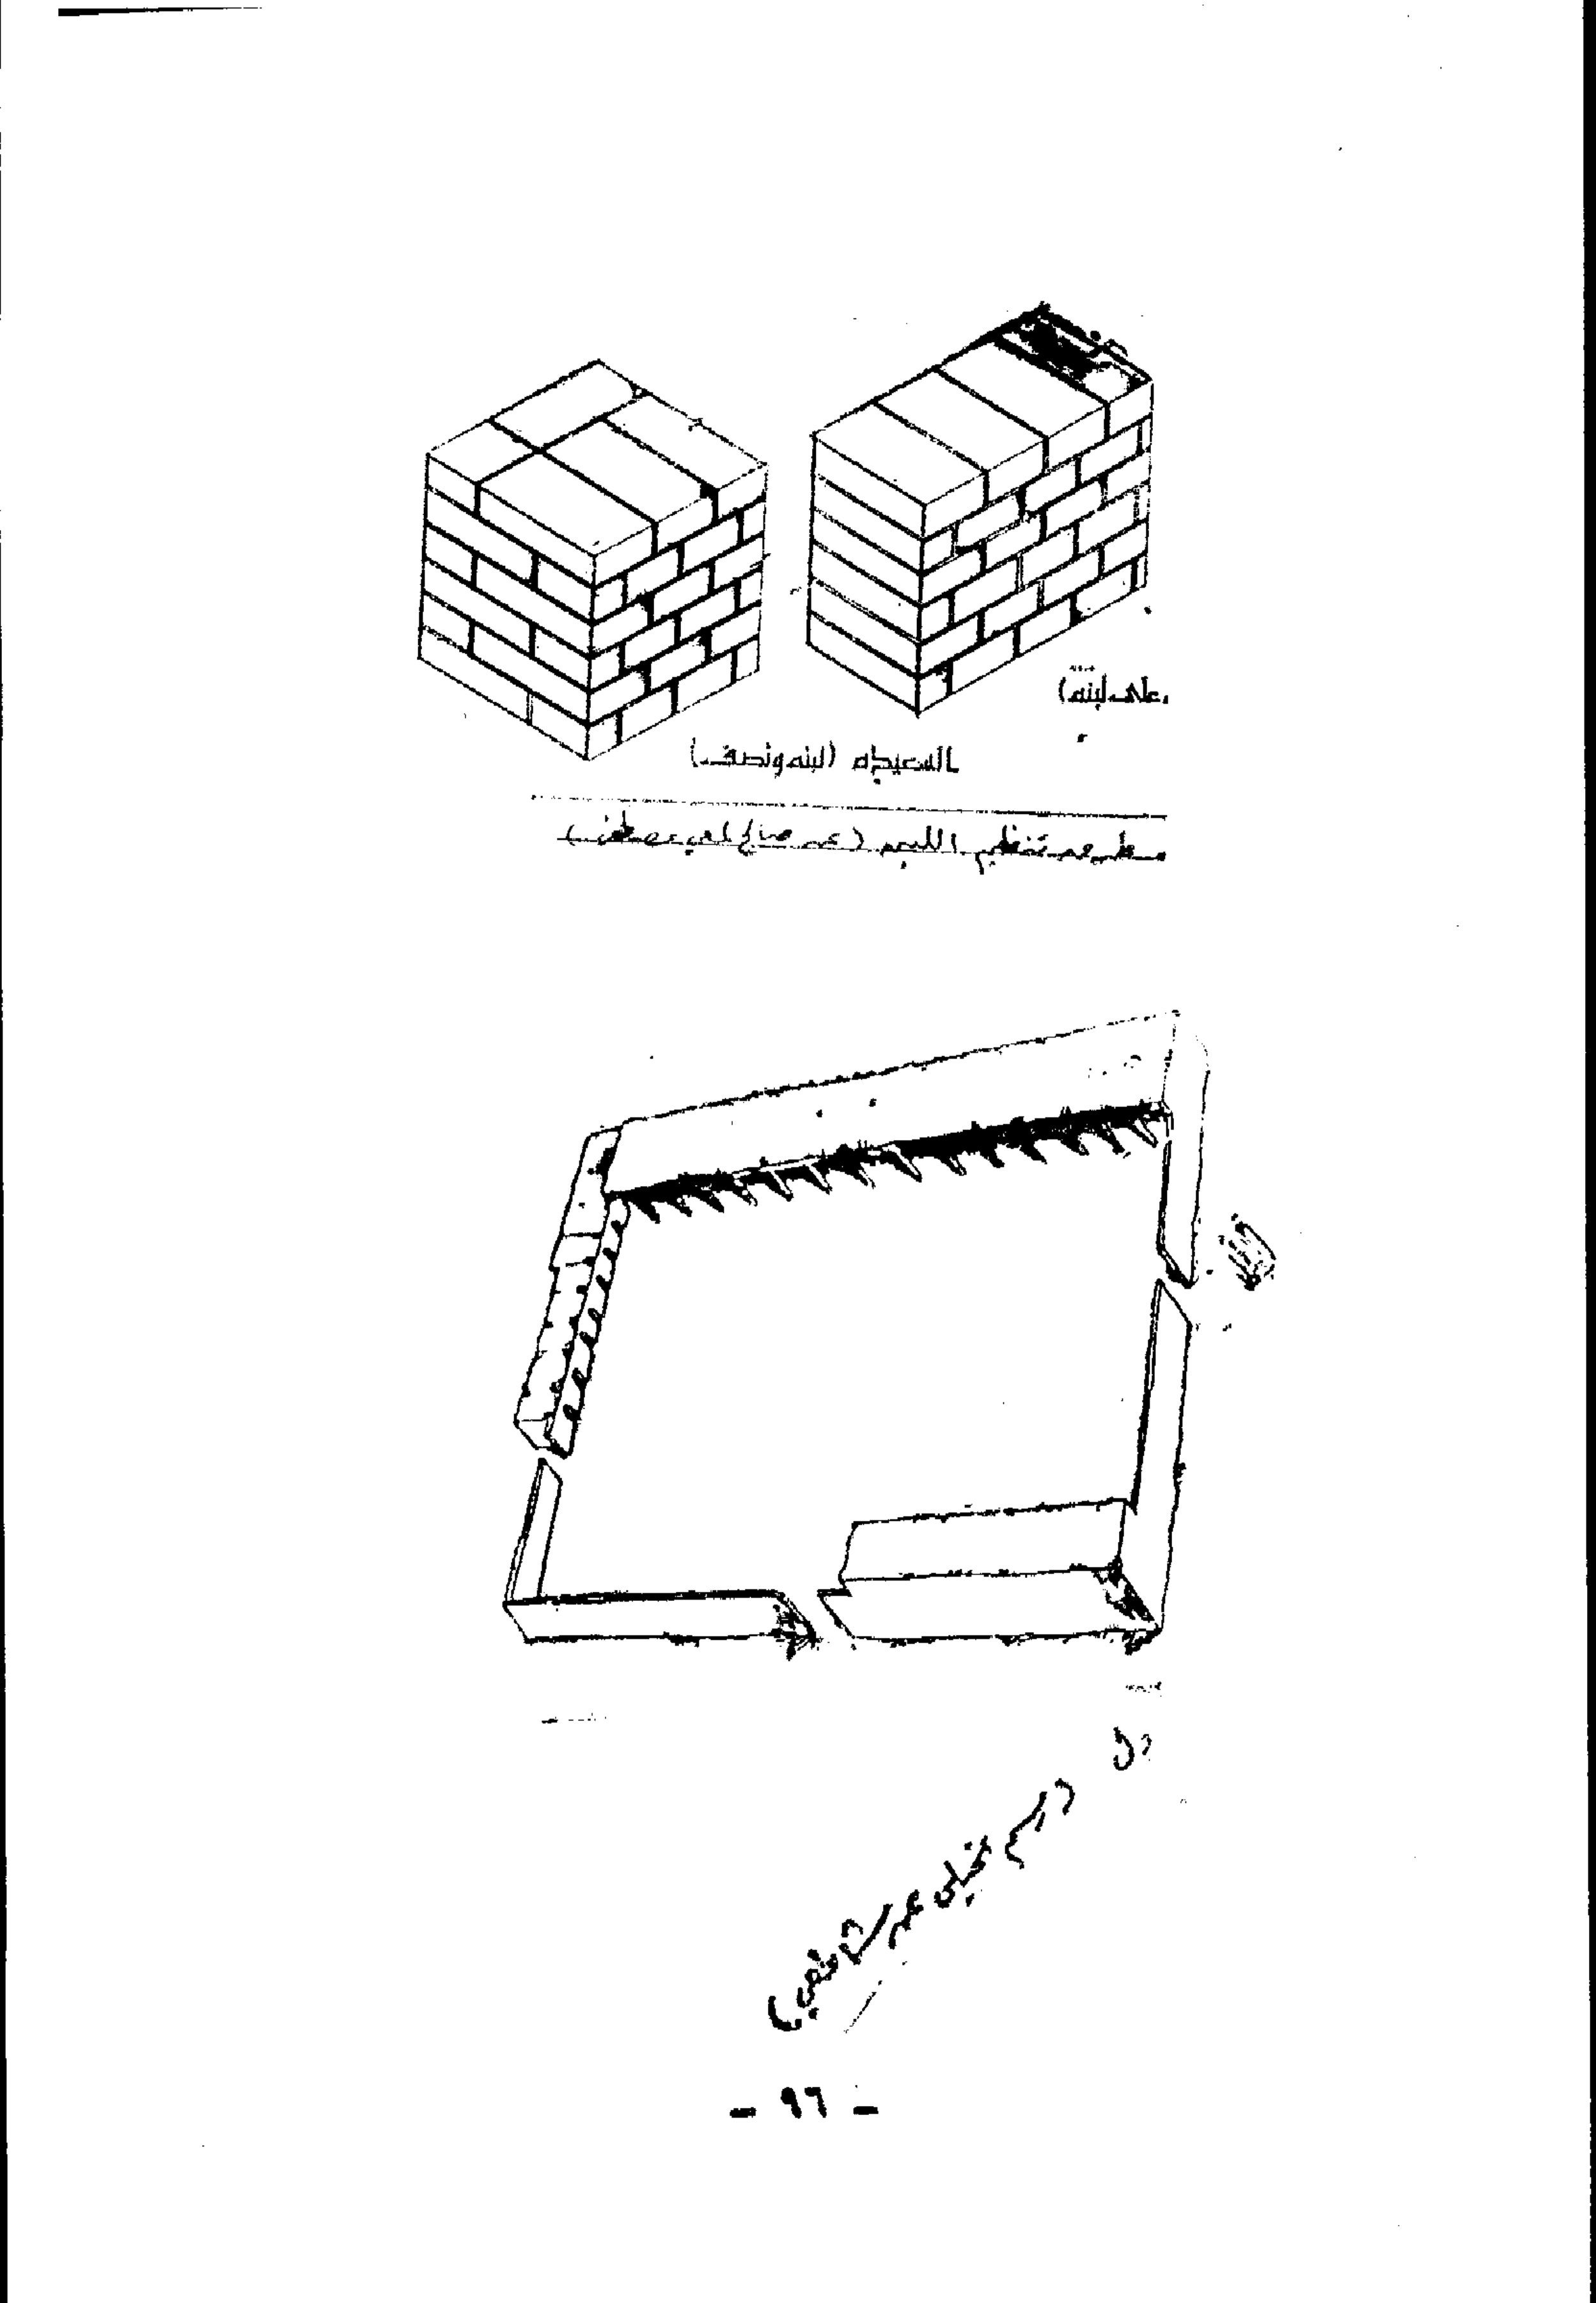 على لبنة)
السعيدة (لبنه ونصف)
تنظيم اللبن (عن صالح لمعي مصطفى)
(رسم تخيلي عن شافعي)
- ٩٦ -